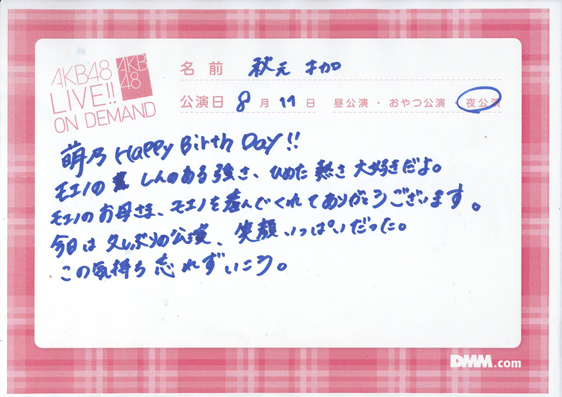 AKB48
LIVE!!
ON DEMAND
AKB
48
名前 秋元 才加
公演日 8月11日 昼公演・おやつ公演・夜公演
萌乃 Happy Birth Day!!
モエノの しんのある強さ、ひめた熱さ 大好きだよ。
モエノのお母さま、モエノを産んでくれてありがとうございます。
今日は久しぶりの公演、笑顔いっぱいだった。
この気持ち忘れずいこう。
DMM.com